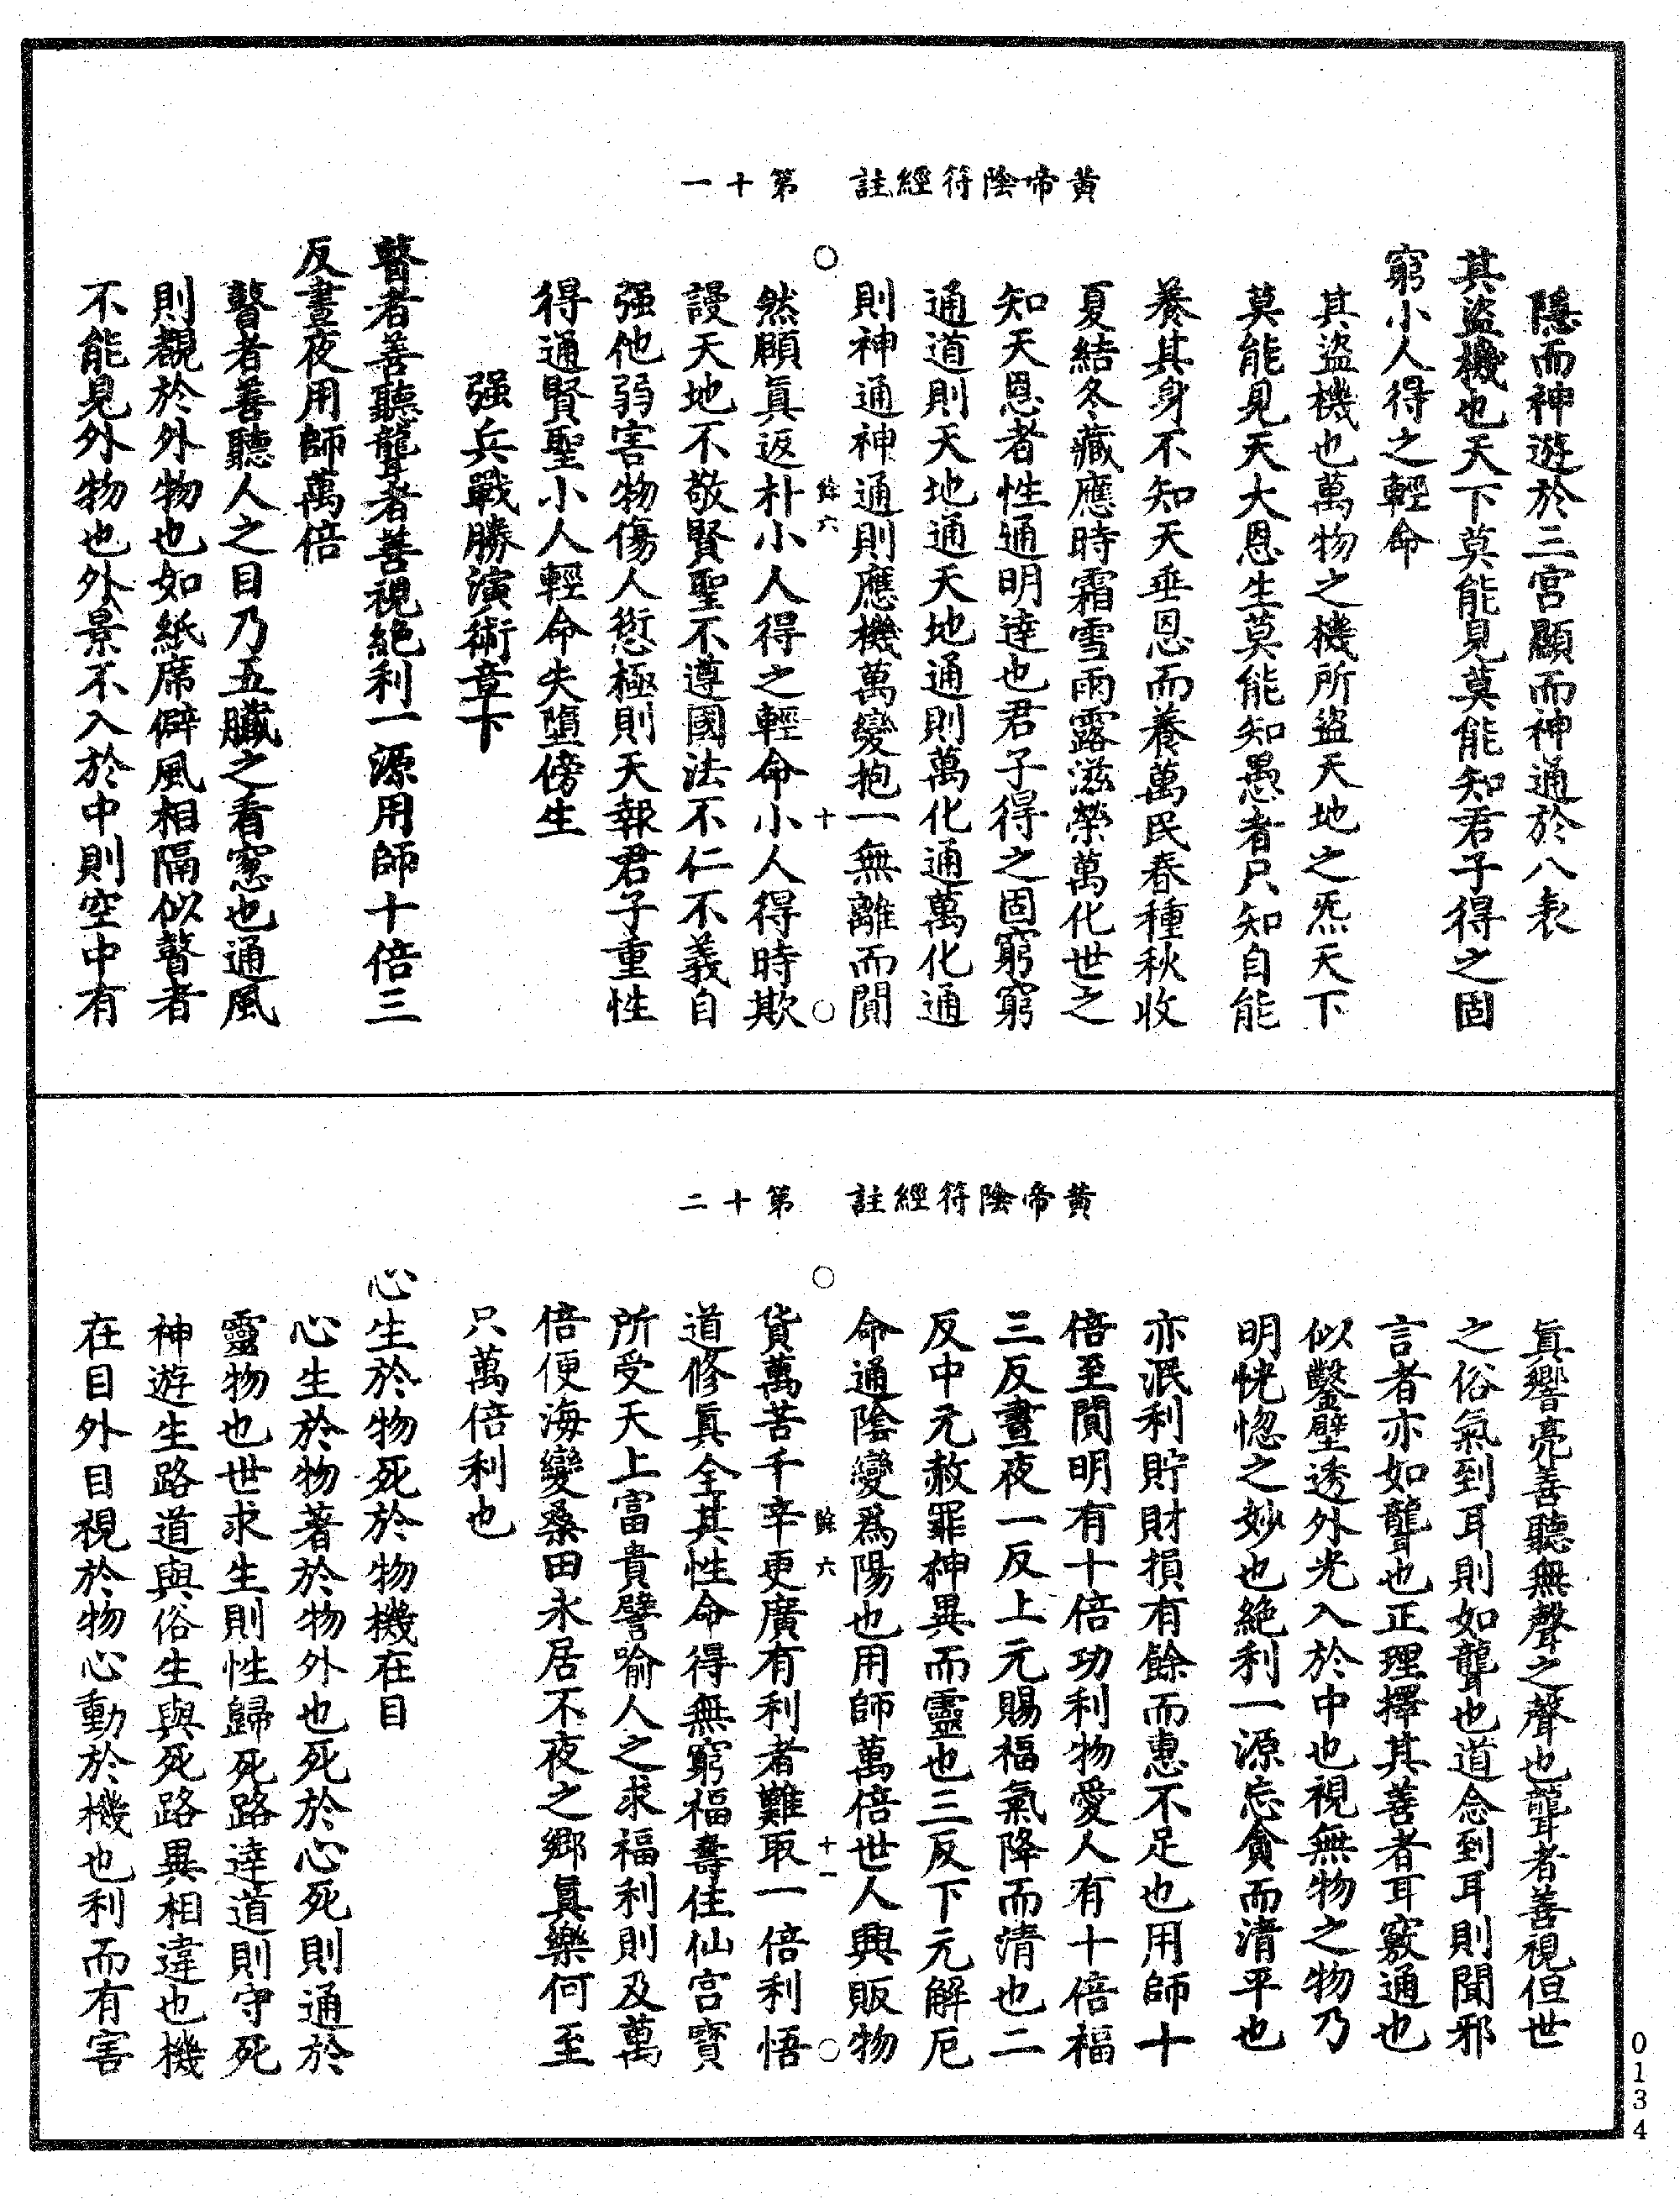 黃帝陰符經註　第十一
隱而神遊於三宮顯而神通於八表
其盜機也天下莫能見莫能知君子得之固
窮小人得之輕命
其盜機也萬物之機所盜天地之炁天下
莫能見天大恩生莫能知愚者只知自能
養其身不知天垂恩而養萬民春種秋收
夏結冬藏應時霜雪雨露滋榮萬化世之
知天恩者性通明達也君子得之固窮窮
通道則天地通天地通則萬化通萬化通
則神通神通則應機萬變抱一無離而閒
○　餘六　十　○
然願眞返朴小人得之輕命小人得時欺
謾天地不敬賢聖不遵國法不仁不義自
强他弱害物傷人愆極則天報君子重性
得通賢聖小人輕命失墮傍生
强兵戰勝演術章下
瞽者善聽聾者善視絕利一源用師十倍三
反晝夜用師萬倍
瞽者善聽人之目乃五臟之看窓也通風
則覩於外物也如紙席僻風相隔似瞽者
不能見外物也外景不入於中則空中有
黃帝陰符經註　第十二
眞響亮善聽無聲之聲也聾者善視但世
之俗氣到耳則如聾也道念到耳則聞邪
言者亦如聾也正理擇其善者耳竅通也
似鑿壁透外光入於中也視無物之物乃
明恍惚之妙也絕利一源忘貪而清平也
亦泯利貯財損有餘而惠不足也用師十
倍至閒明有十倍功利物愛人有十倍福
三反晝夜一反上元賜福氣降而清也二
反中元赦罪神異而靈也三反下元解厄
命通陰變爲陽也用師萬倍世人興販物
○　餘六　十一　○
貨萬苦千辛更廣有利者難取一倍利悟
道修眞全其性命得無窮福壽住仙宮寶
所受天上富貴譬喻人之求福利則及萬
倍便海變桑田永居不夜之鄉眞樂何至
只萬倍利也
心生於物死於物機在目
心生於物著於物外也死於心死則通於
靈物也世求生則性歸死路達道則守死
神遊生路道與俗生與死路異相違也機
在目外目視於物心動於機也利而有害
0134